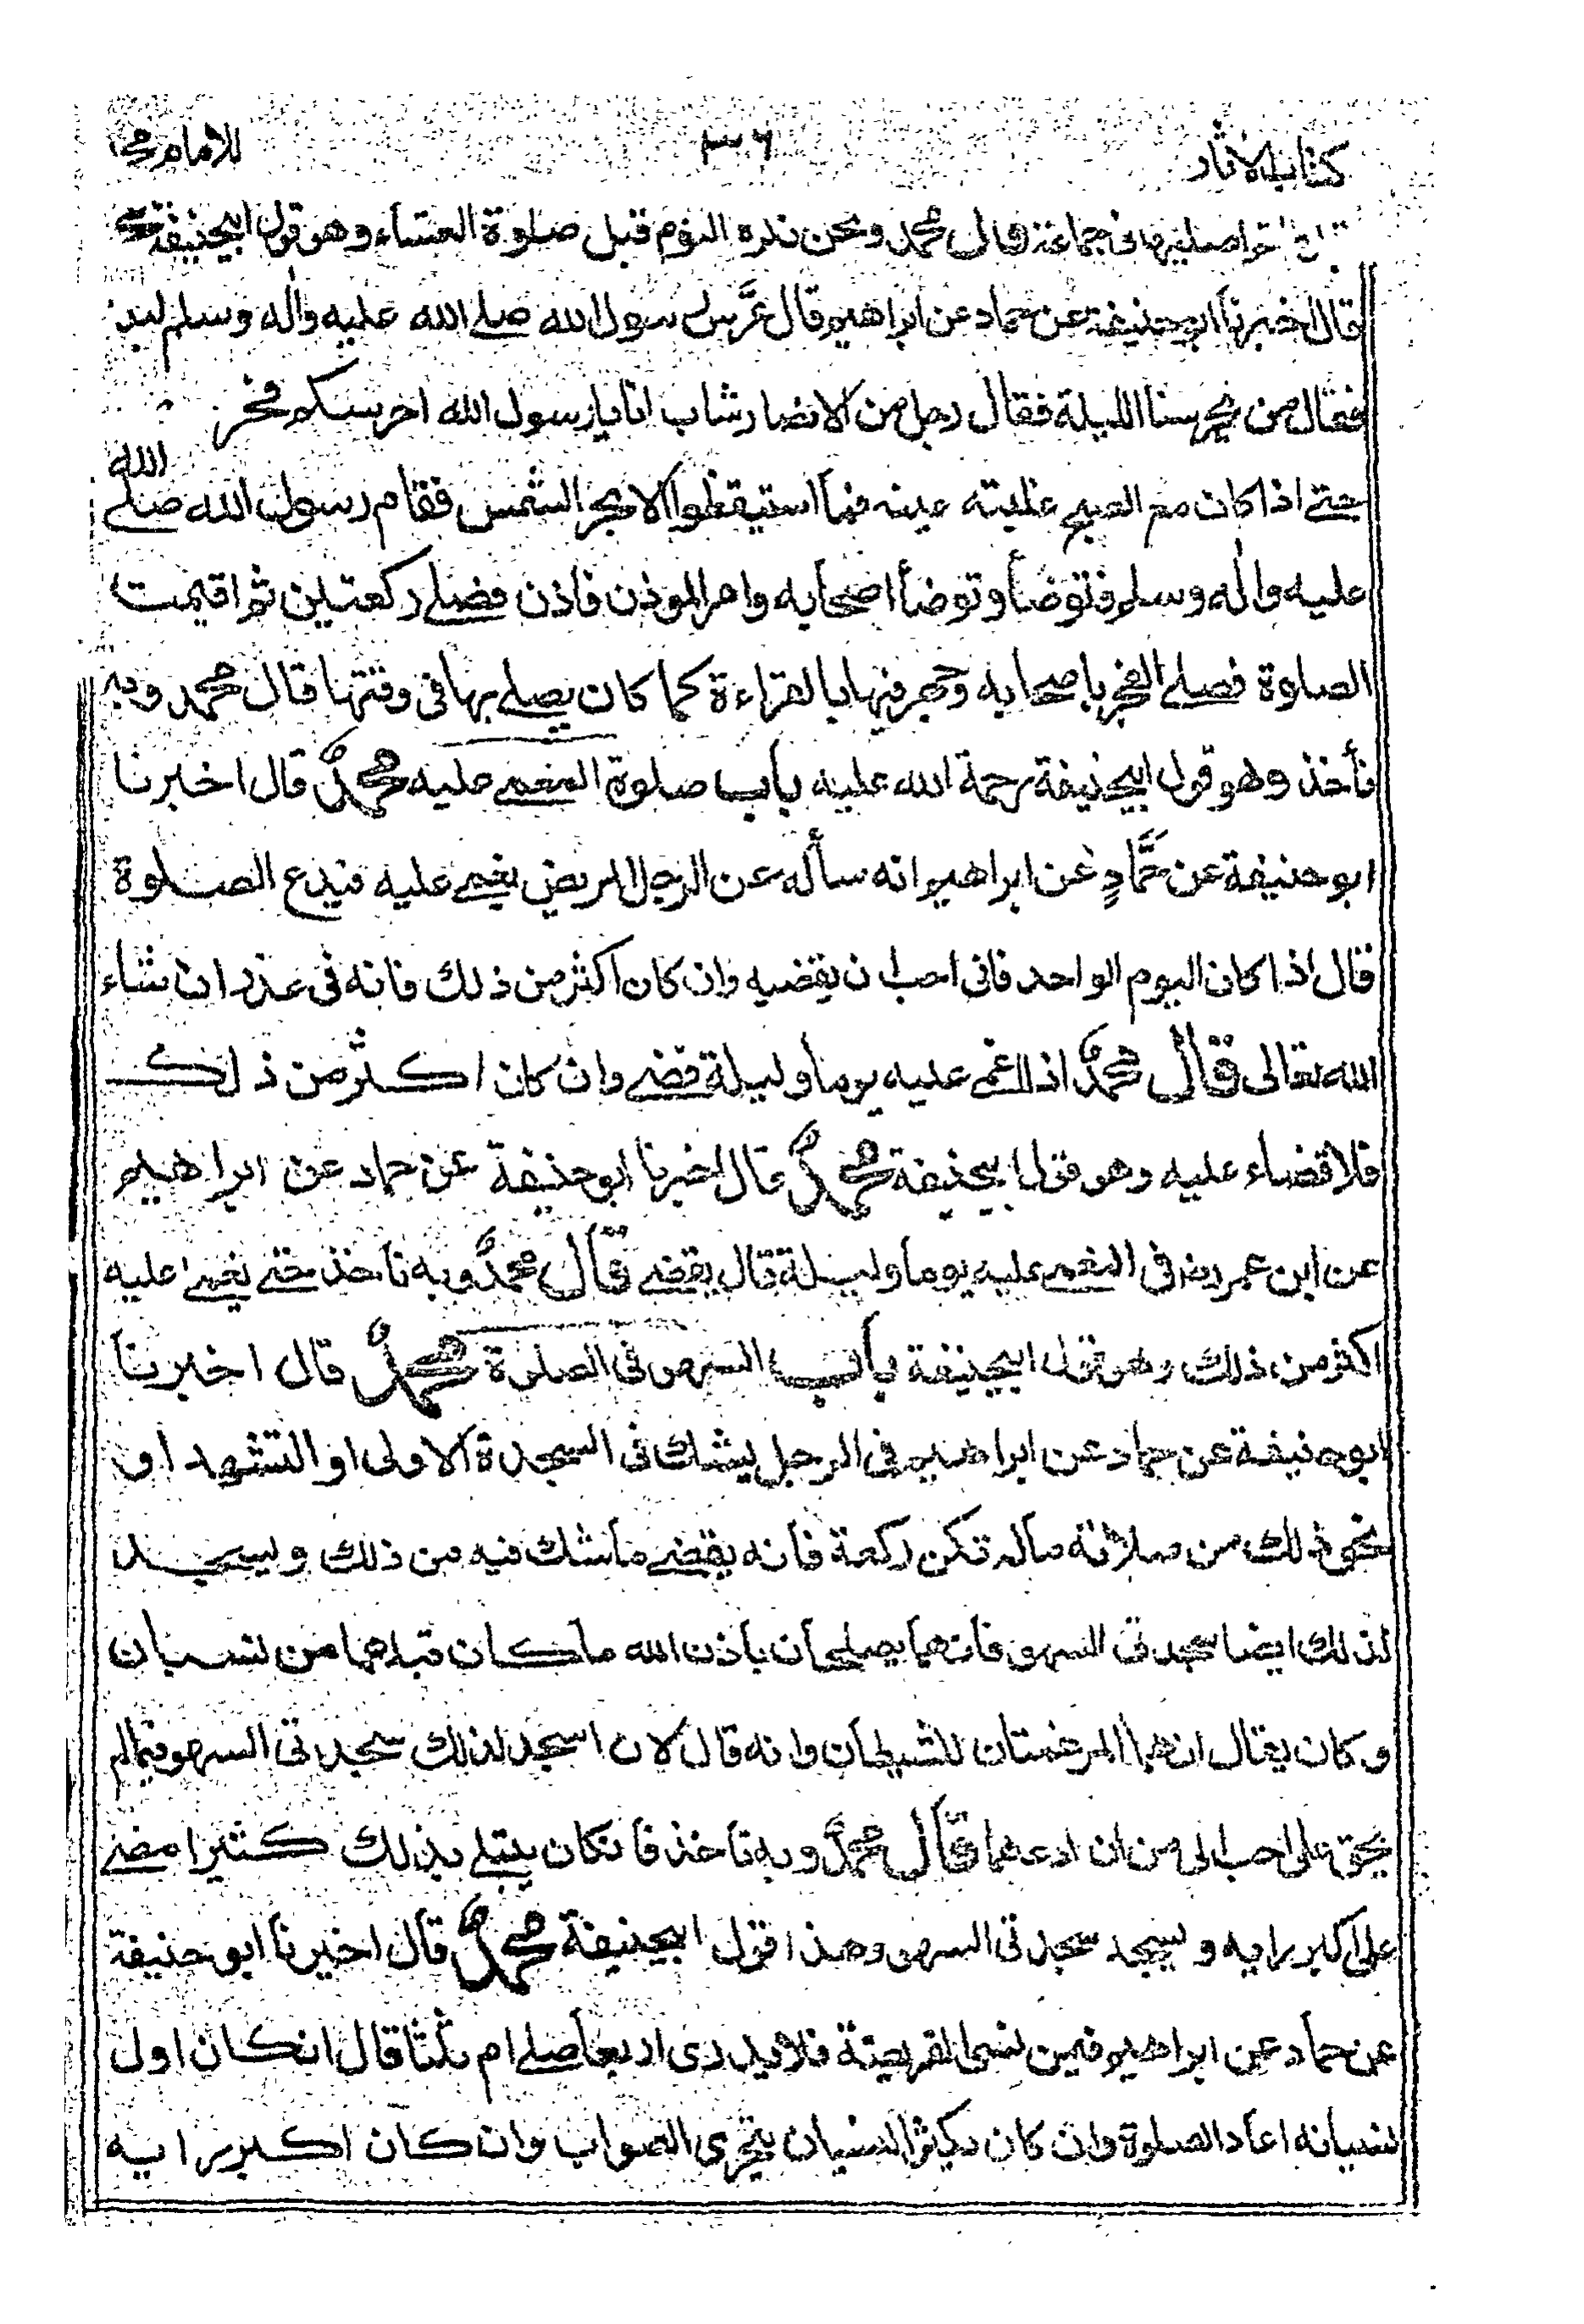 كتاب الآثار ٣٦ للامام محمد
صليتها فى جماعة قال محمد ونحن نكره النوم قبل صلوة العشاء وهو قول ابيحنيفة
قال اخبرنا ابوحنيفة عن حماد عن ابراهيم قال عرَّس رسول الله صلے الله عليه واٰله وسلم ليلة
فقال من يحرسنا الليلة فقال رجل من الانصار شاب انا يا رسول الله احرسكم فحرسهم
حتے اذا كان مع الصبح غلبته عينه فما استيقظوا الا بحر الشمس فقام رسول الله صلے الله
عليه واٰله وسلم فتوضأ وتوضأ اصحابه وامر الموذن فاذن فصلے ركعتين ثم اقيمت
الصلوة فصلے الفجر باصحابه وجهر فيها بالقراءة كما كان يصلے بها فى وقتها قال محمد وبه
نأخذ وهو قول ابيحنيفة رحمة الله عليه باب صلوة المغمے عليه محمدٌ قال اخبرنا
ابوحنيفة عن حمَّادٍ عن ابراهيم انه سأله عن الرجل المريض يغمے عليه فيدع الصلوة
قال اذا كان اليوم الواحد فانى احب ان يقضيه وان كان اكثر من ذلك فانه فى عذر ان شاء
الله تعالى قال محمدٌ اذا اغمے عليه يوما وليلة قضے وان كان اكثر من ذلك
فلا قضاء عليه وهو قول ابيحنيفة محمدٌ قال اخبرنا ابوحنيفة عن حماد عن ابراهيم
عن ابن عمر رض فى المغمے عليه يوما وليلة قال يقضے قال محمدٌ وبه نأخذ حتے يغمے عليه
اكثر من ذلك وهو قول ابيحنيفة باب السهو فى الصلوة محمدٌ قال اخبرنا
ابوحنيفة عن حماد عن ابراهيم فى الرجل يشك فى السجدة الاولى او التشهد او
نحو ذلك من صلاته ما لم تكن ركعة فانه يقضے ما شك فيه من ذلك ويسجد
لذلك ايضا سجدتى السهو فانهما يصلحان باذن الله ما كان قبلهما من نسيان
وكان يقال انهما المرغمتان للشيطان وانه قال لان اسجد لذلك سجدتى السهو فيما لم
يحق على احب الى من ان ادعهما قال محمدٌ وبه نأخذ فان كان يبتلے بذلك كثيرا مضے
على اكبر رايه ويسجد سجدتى السهو وهذا قول ابيحنيفة محمدٌ قال اخبرنا ابوحنيفة
عن حماد عن ابراهيم فيمن نسى الفريضة فلا يدرى اربعا صلے ام ثلثا قال ان كان اول
نسيانه اعاد الصلوة وان كان يكثر النسيان يتحرى الصواب وان كان اكبر رايه